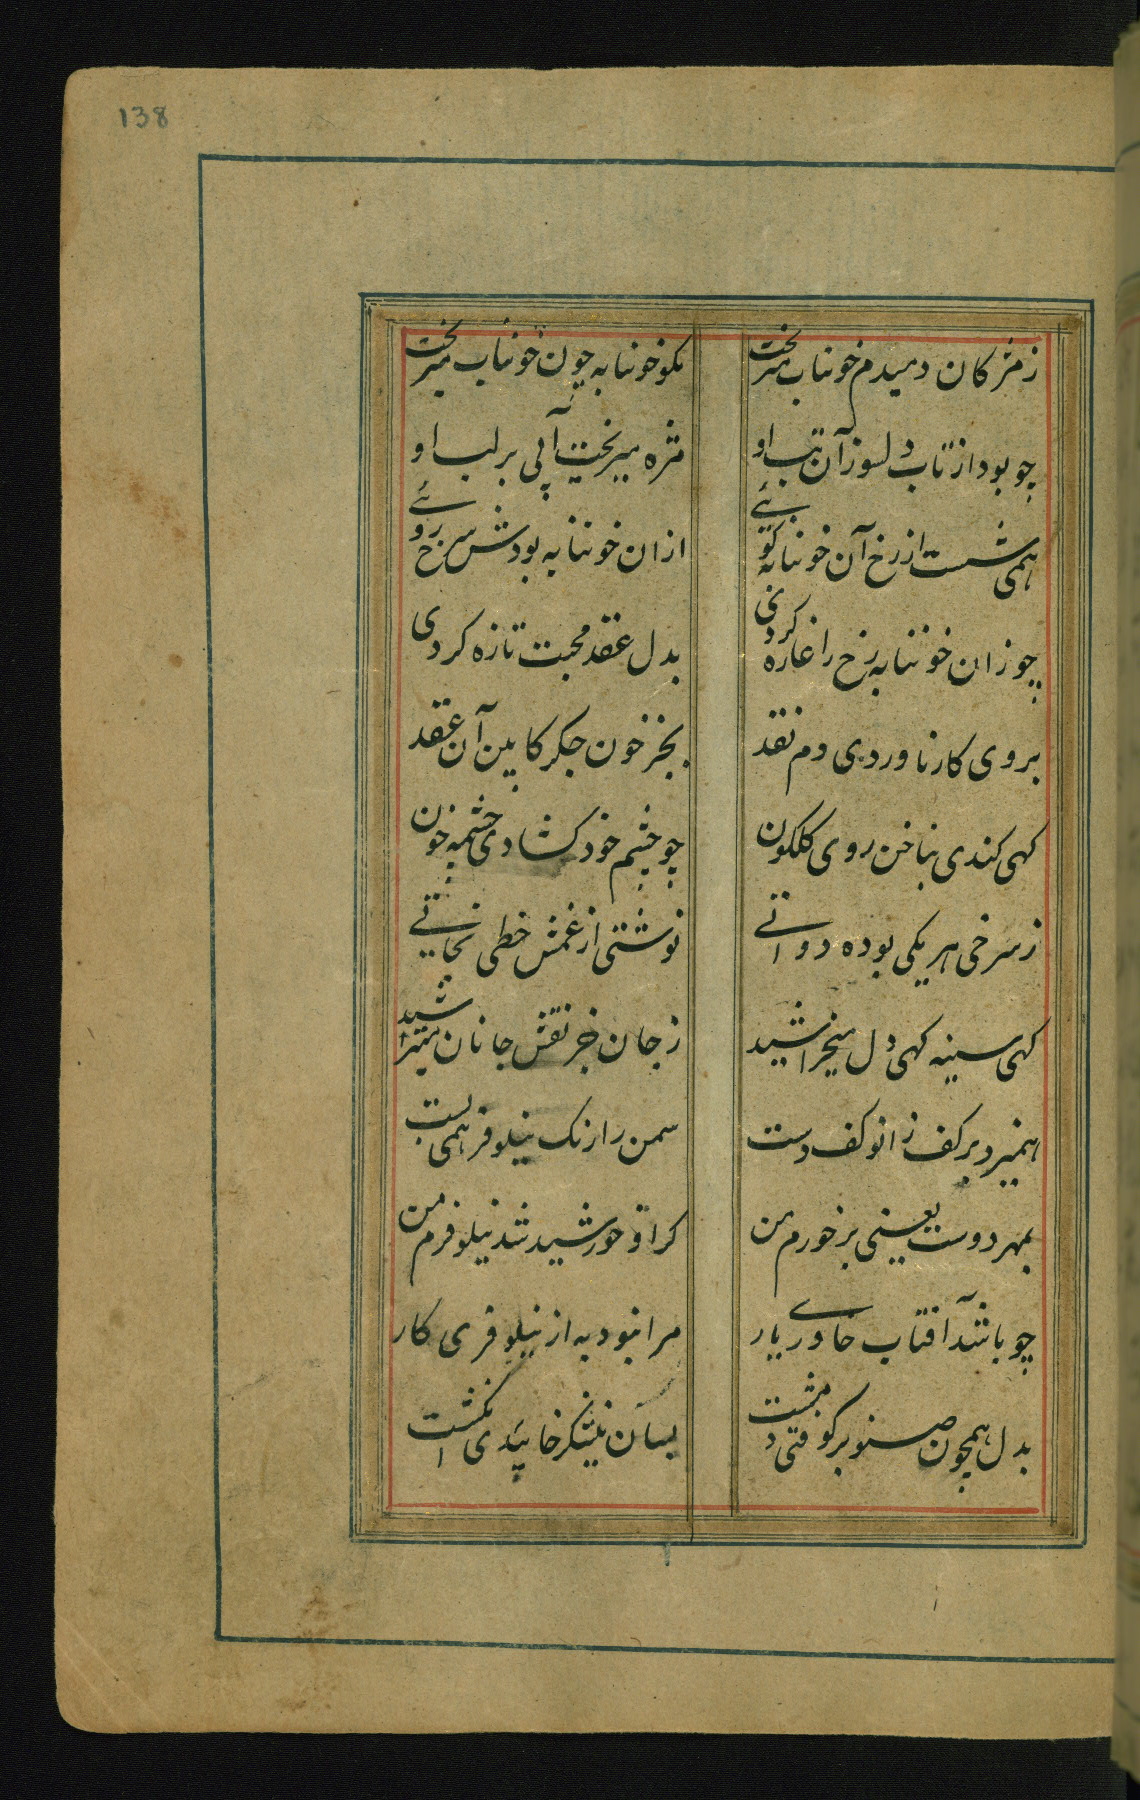 138
زمژکان دمیدم خوناب میریخت مکو خونابه چون خوناب میریخت
چو بود از تاب دلسوز آن تب او مژه میریخت آبی بر لب او
همی شست از رخ آن خونابه کوئی ازان خونابه بودش سرخ روئے
چو زان خونابه رخ را غازه کردی بدل عقد محبت تازه کردی
بروی کار ناوردی دم نقد بجز خون جکر کابین آن عقد
کهی کندی بناخن روی کلکون چو چشم خود کشادی چشمه خون
ز سرخی هر یکی بوده دواتے نوشتی از غمش خطی نجاتے
کهی سینه کهی دل میخراشید ز جان جز نقش جانان میتراشید
همیزد بر کف زانو کف دست سمن را رنک نیلوفر همی بست
بمهر دوست یعنی بر خورم من کر او خورشید شد نیلوفرم من
چو باشد آفتاب خاوری یار مرا نبود به از نیلوفری کار
بدل همچون صنوبر کوفتی مشت بسان نیشکر خاییدی انکشت